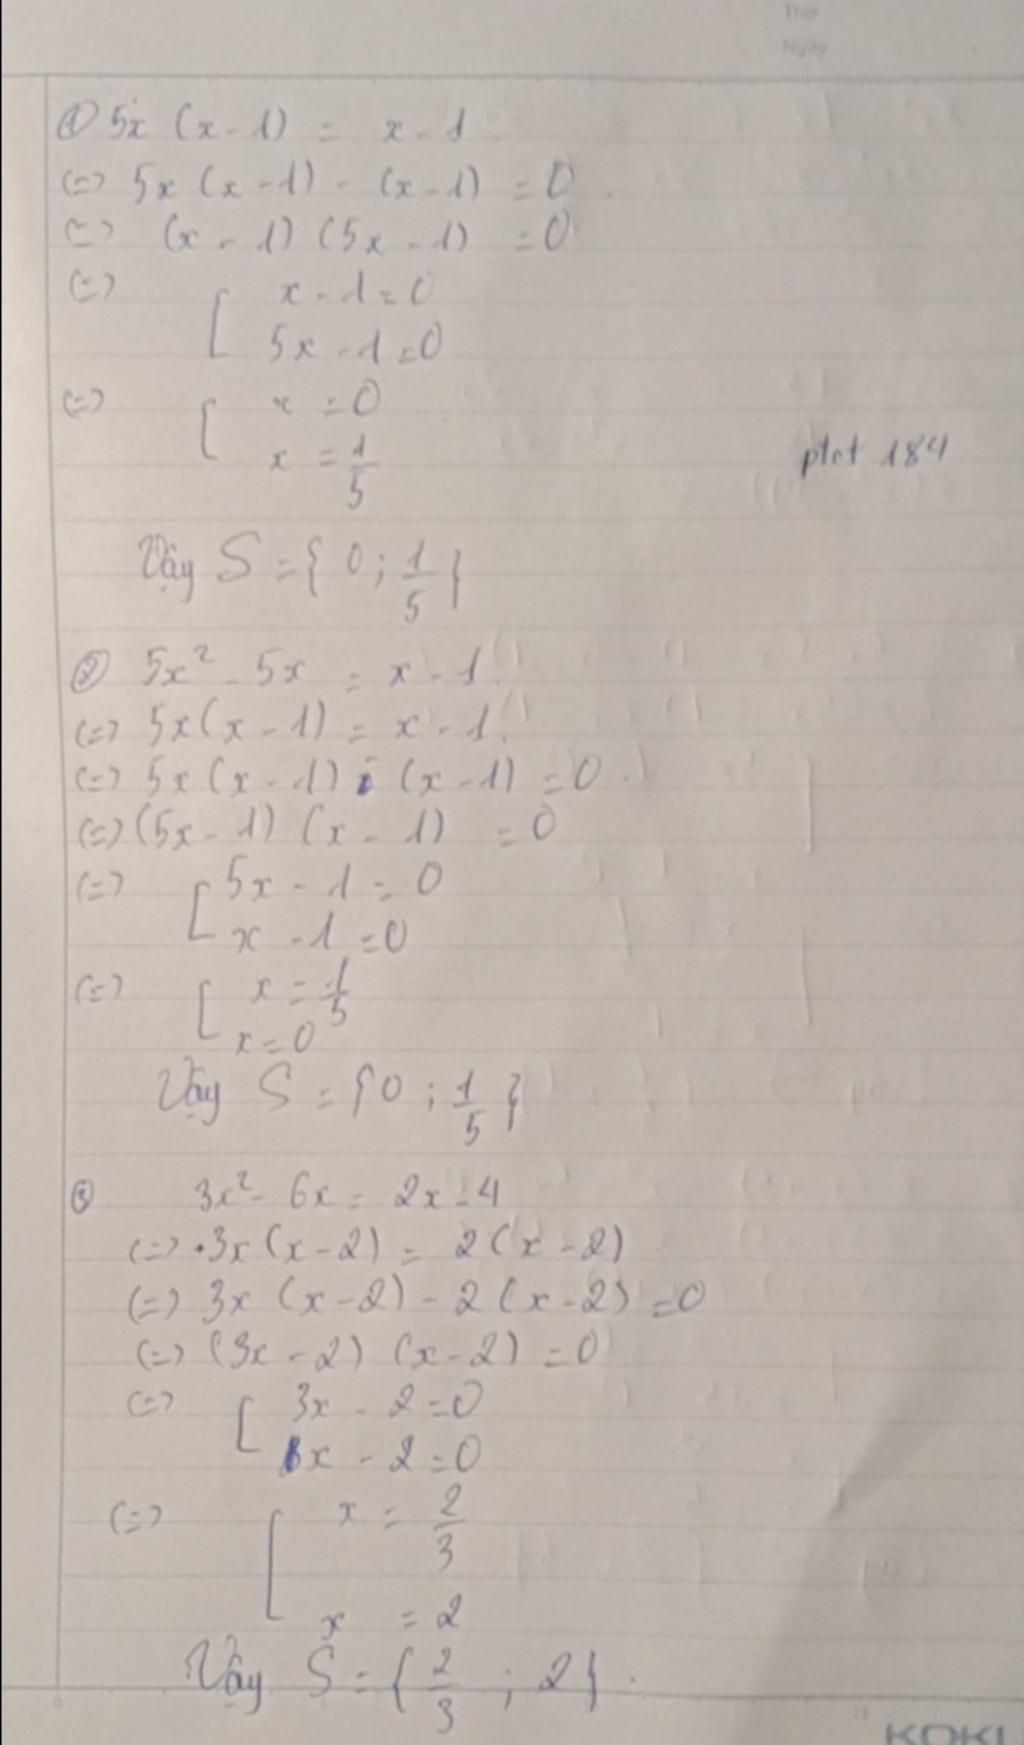 Thứ
Ngày
① 5x (x - 1) = x - 1
(=) 5x (x - 1) - (x - 1) = 0
(=) (x - 1) (5x - 1) = 0
(=) [ x - 1 = 0
5x - 1 = 0
(=) [ x = 0
x = 1/5
plot 184
Vậy S = { 0 ; 1/5 }
② 5x² - 5x = x - 1
(=) 5x (x - 1) = x - 1
(=) 5x (x - 1) - (x - 1) = 0
(=) (5x - 1) (x - 1) = 0
(=) [ 5x - 1 = 0
x - 1 = 0
(=) [ x = 1/5
x = 0
Vậy S = { 0 ; 1/5 }
③ 3x² - 6x = 2x - 4
(=) 3x (x - 2) = 2 (x - 2)
(=) 3x (x - 2) - 2 (x - 2) = 0
(=) (3x - 2) (x - 2) = 0
(=) [ 3x - 2 = 0
x - 2 = 0
(=) [ x = 2/3
x = 2
Vậy S = { 2/3 ; 2 } .